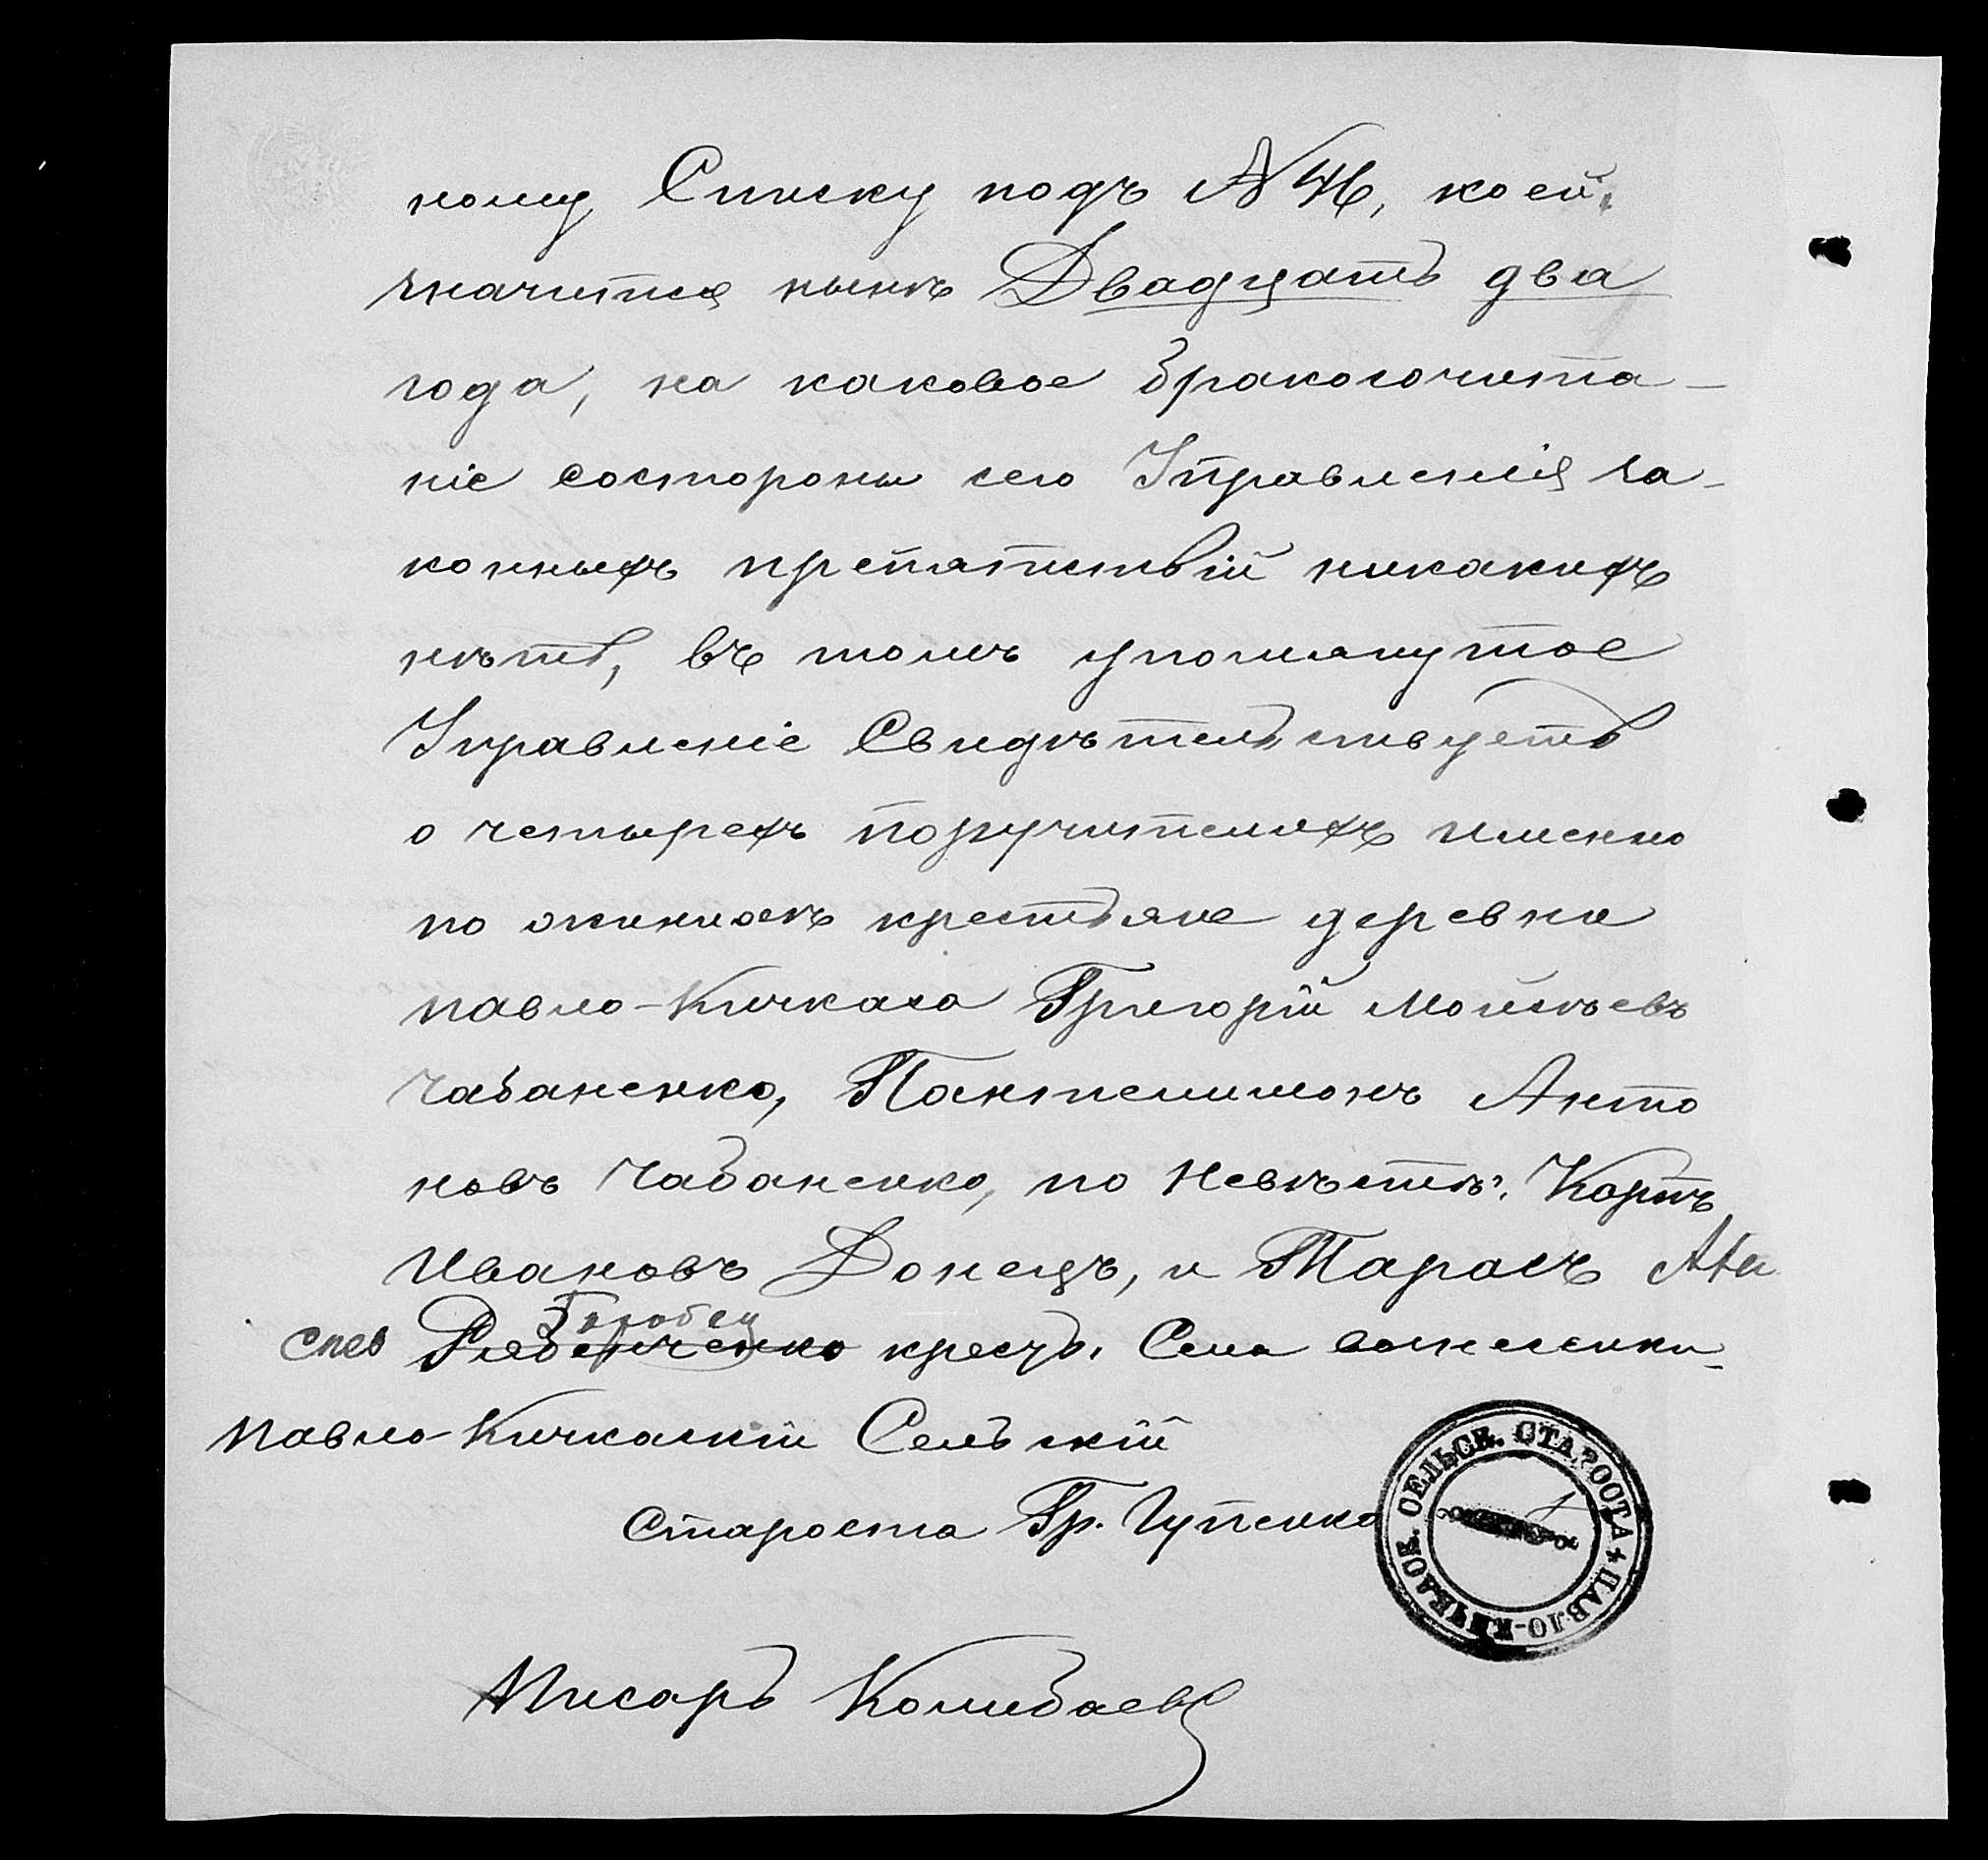 ному Списку подъ № 46, коей
значится нынѣ Двадцать два
года, на каковое бракосочета-
ніе состороны сего Управленія за-
конныхъ препятствій никакихъ
нѣтъ, въ томъ упомянутое
Управленіе Свидѣтельствуетъ
о четырехъ поручителяхъ именно
по женихѣ крестьяне деревни
Павло-Кичкаса Григорій Моисѣевъ
Чабаненко, Пантелимонъ Анто
новъ Чабаненко, по Невѣстѣ: Карпъ
Ивановъ Донецъ, и Тарасъ
Горобец
крест. Села Вознесенки
Павло-Кичкаскій Сельскій
Староста Гр. Гупенко
СЕЛЬСК. СТАРОСТА + ПАВЛО-КИЧКАСК.
Писарь